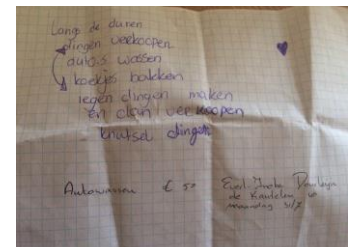 Langs de duren
dingen verkoopen
auto,s wassen
koekjes bakken
iegen dingen maken
en dan verkoopen
knutsel dingen
Autowassen € 50
de Kantelen
maandag